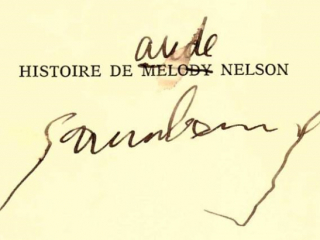 aude
HISTOIRE DE MELODY NELSON
Gainsbourg